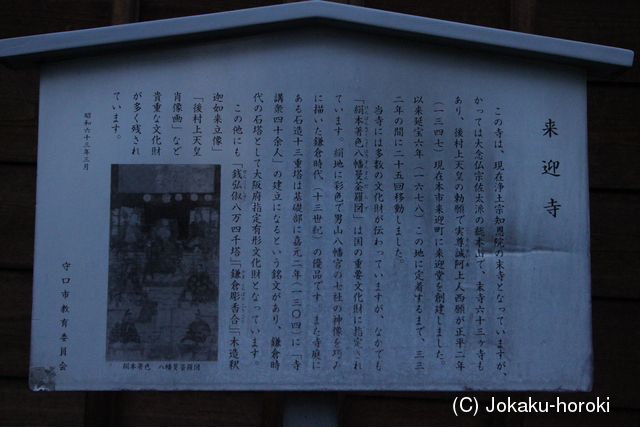 来迎寺
この寺は、現在浄土宗知恩院の末寺となっていますが、
かつては大念仏宗佐太派の総本山で、末寺六十三ヶ寺も
あり、後村上天皇の勅願で実尊誠阿上人西願が正平二年
(一三四七)現在本市来迎町に来迎堂を創建しました。
以来延宝六年(一六七八)この地に定着するまで、三三
二年の間に二十五回移動しました。
当寺には多数の文化財が伝わっていますが、なかでも
「絹本著色八幡曼荼羅図」は国の重要文化財に指定され
ています。絹地に彩色で男山八幡宮の七社の神像を巧み
に描いた鎌倉時代(十三世紀)の優品です。また寺庭に
ある石造十三重塔は基礎部に嘉元二年(一三〇四)に「寺
講衆四十余人」の建立になるという銘文があり、鎌倉時
代の石塔として大阪府指定有形文化財となっています。
この他にも「銭弘俶八万四千塔」「鎌倉彫香合」「木造釈
迦如来立像」
「後村上天皇
肖像画」など
貴重な文化財
が多く残され
ています。
昭和六十三年三月
絹本著色 八幡曼荼羅図
守口市教育委員会
(C) Jokaku-horoki